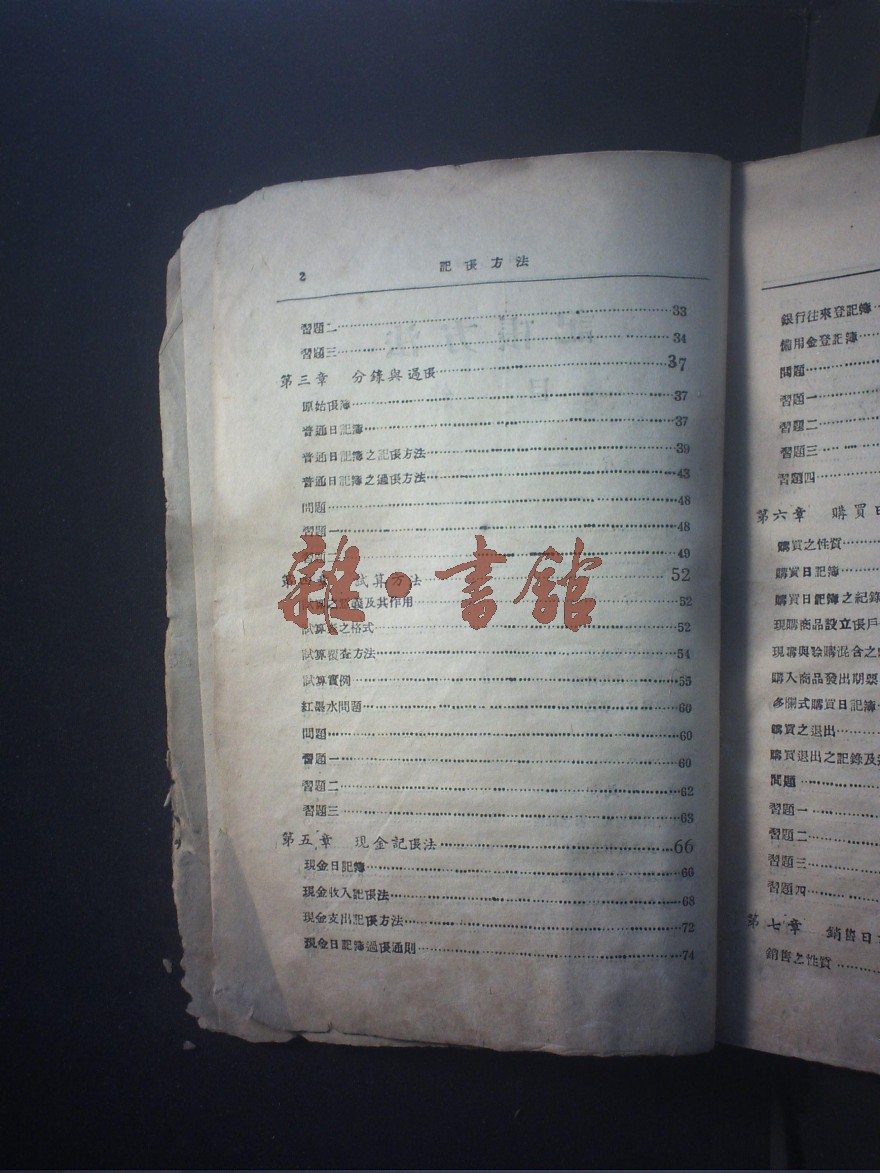 2 記張方法
習題二 33
習題三 34
第三章 分錄與過張 37
原始張簿 37
普通日記簿 37
普通日記簿之記張方法 39
普通日記簿之過張方法 43
問題 48
習題一 48
49
第 試算方法 52
及其作用 52
試算表之格式 52
試算覆查方法 54
試算實例 55
紅墨水問題 60
問題 60
習題一 60
習題二 62
習題三 63
第五章 現金記張法 66
現金日記簿 66
現金收入記張法 68
現金支出記張方法 72
現金日記簿過張通則 74
雜·書館
銀行往來登記簿
備用金登記簿
問題
習題一
習題二
習題三
習題四
第六章 購買日
購買之性質
購買日記簿
購買日記簿之紀錄
現購商品設立張戶
現購與賒購混合之
購入商品發出期票
多欄式購買日記簿
購買之退出
購買退出之記錄及
問題
習題一
習題二
習題三
習題四
第七章 銷售日
銷售之性質